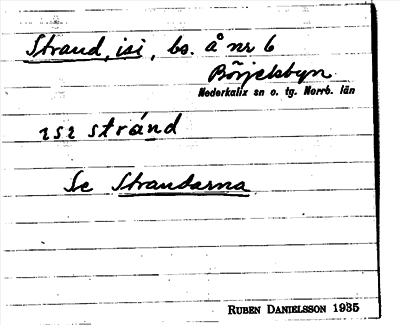 Strand, isi, bs. å nr 6
Börjelsbyn
Nederkalix sn o. tg. Norrb. län
ɪsɪ stránd
Se Strandarna
RUBEN DANIELSSON 1935